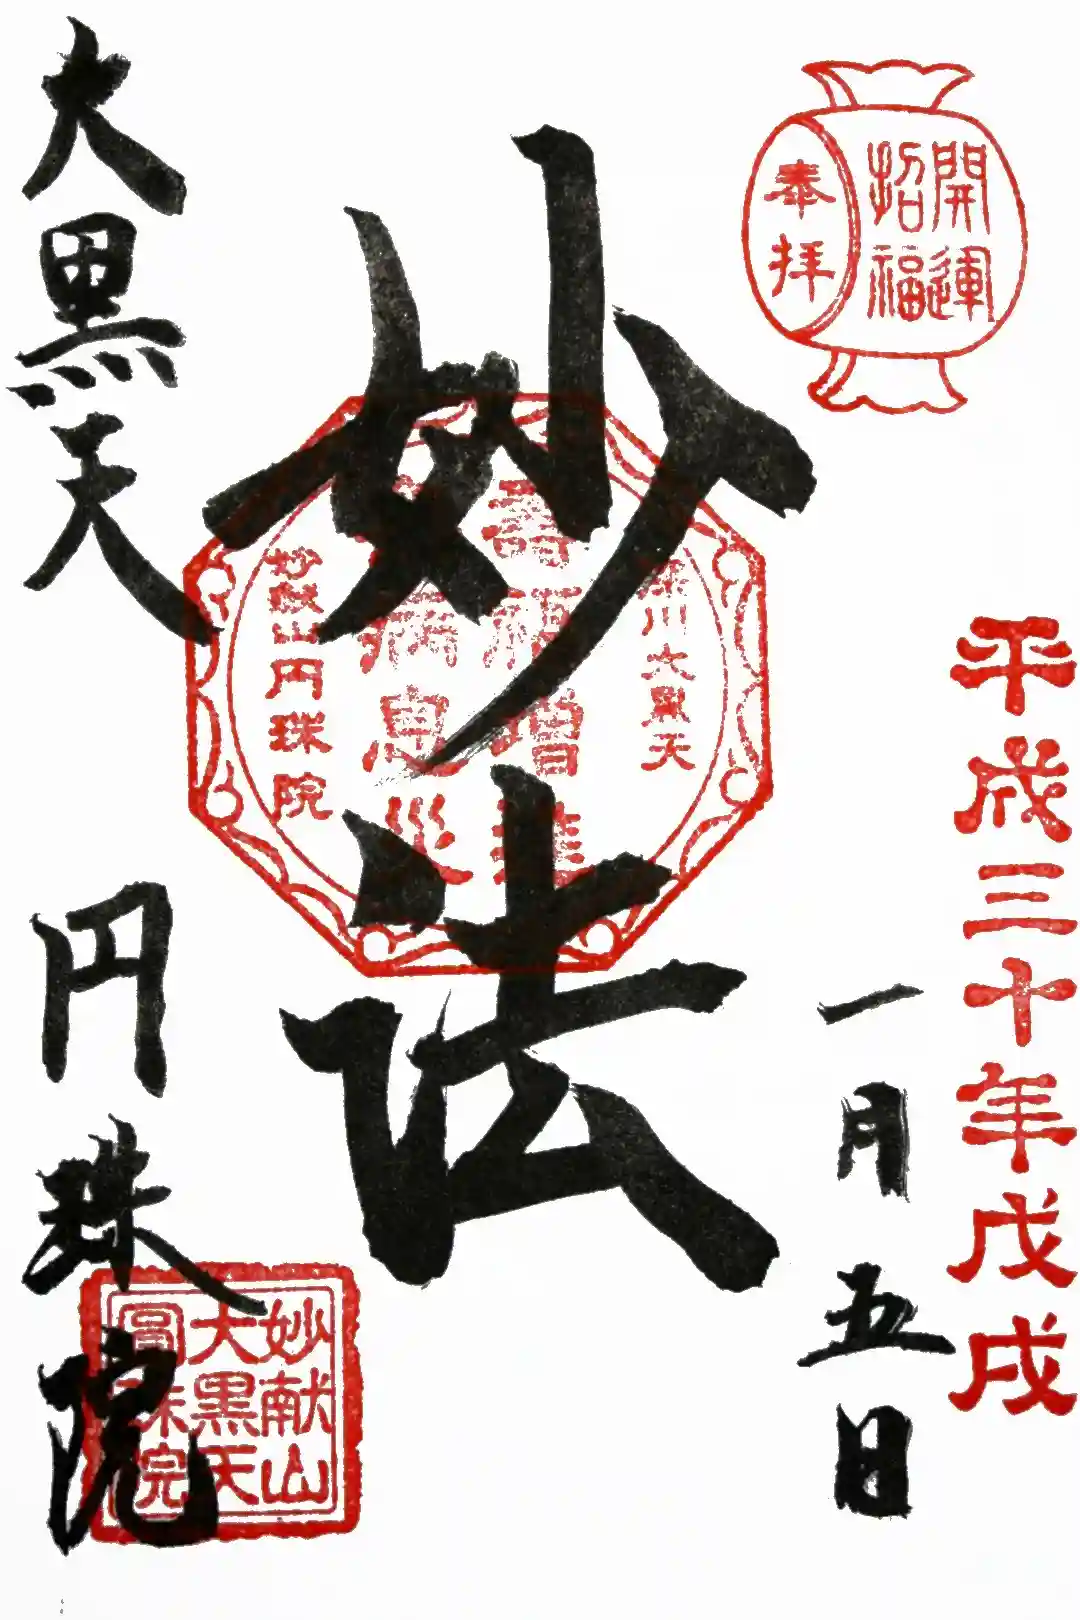 開運
招福
奉拝
平成三十年戊戌
一月五日
妙法
川大黒天
増
病息災
妙献山円珠院
大黒天
円珠院
妙献山
大黒天
圓珠院